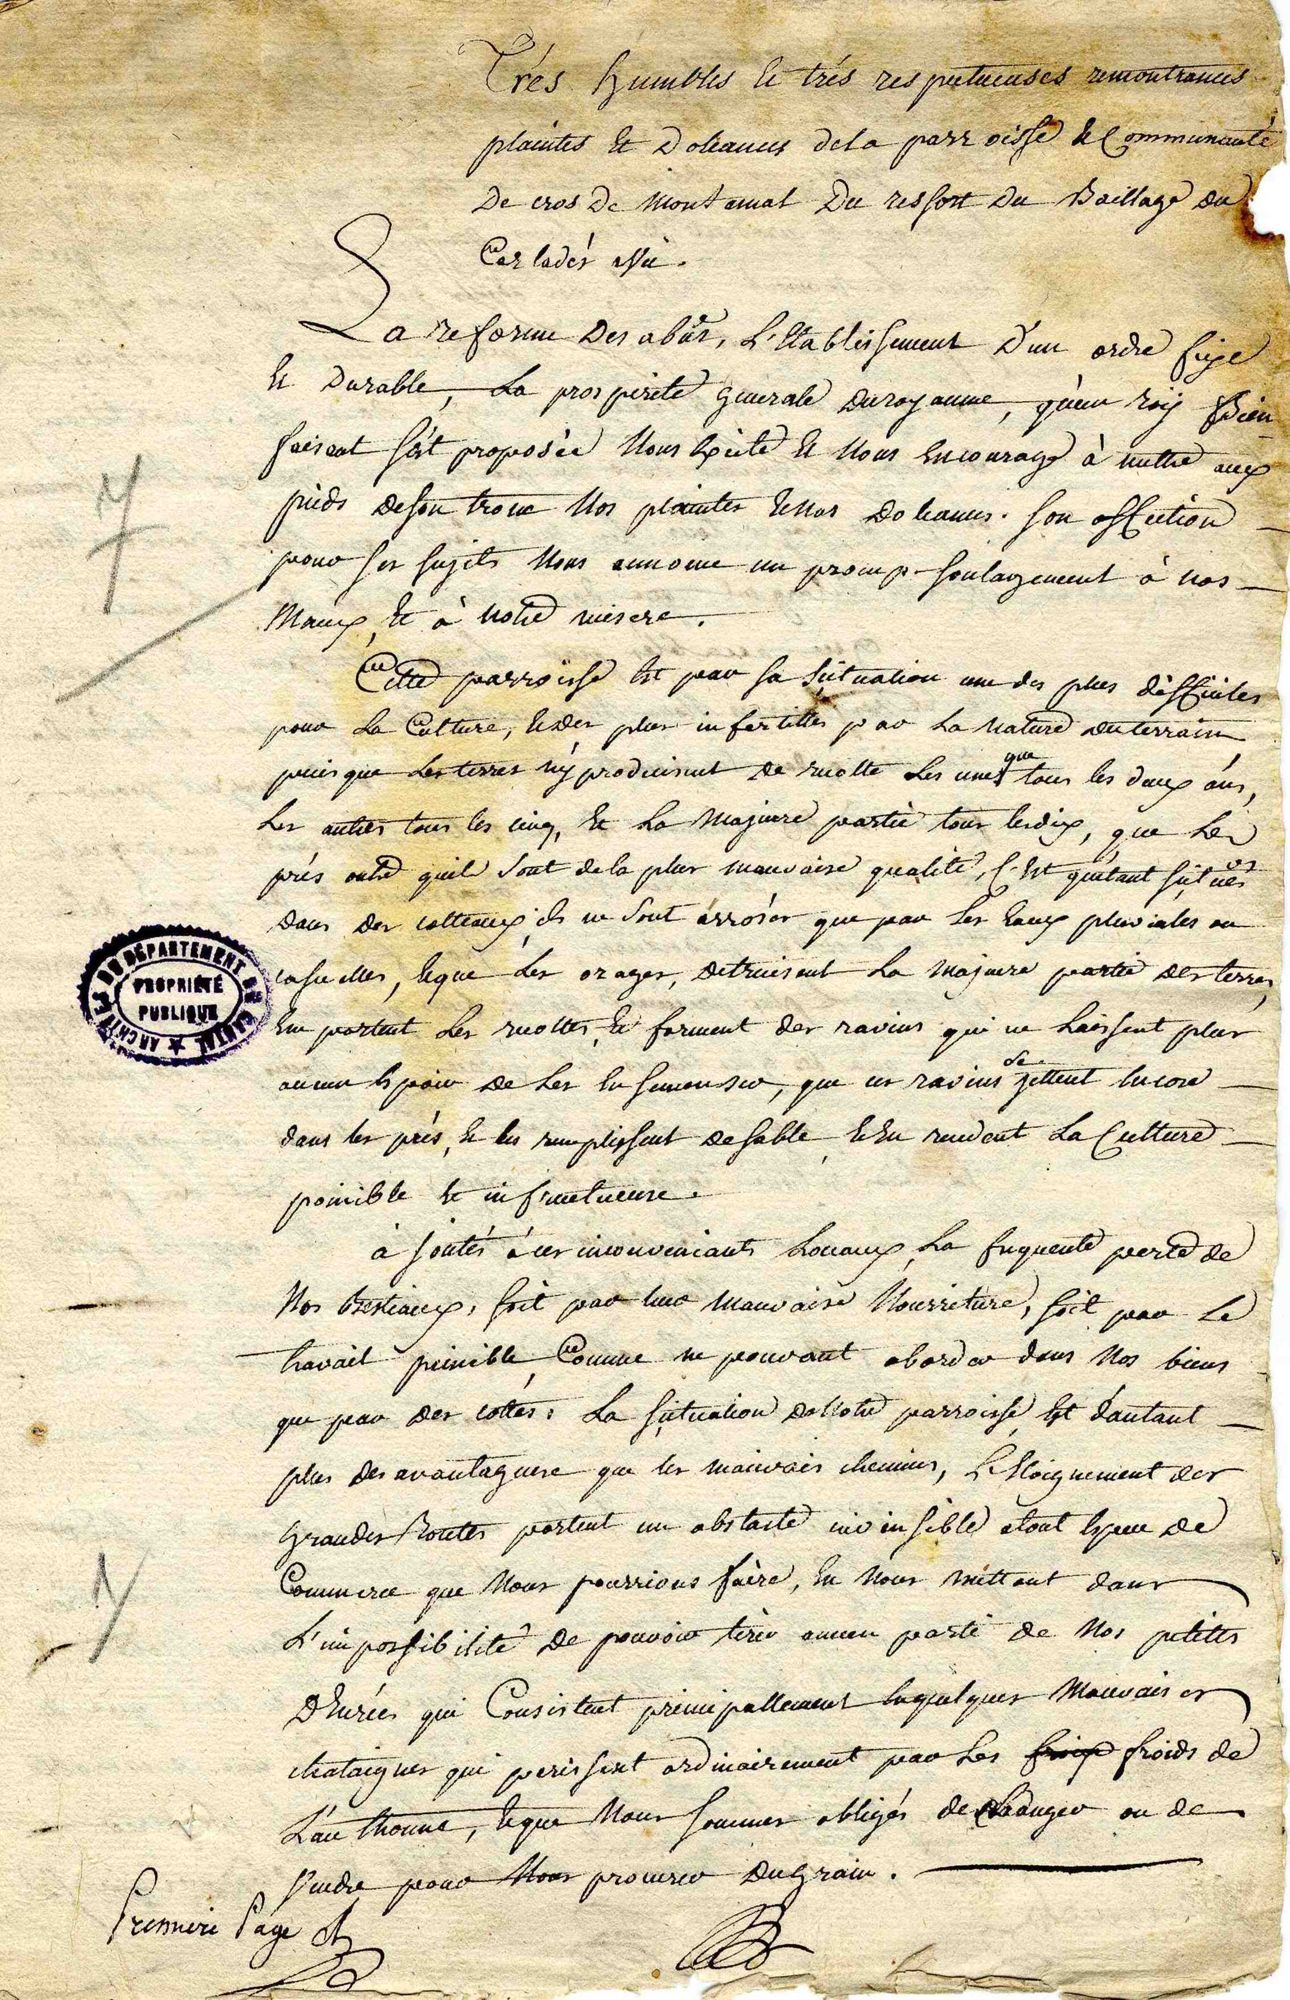 Très humbles et très respectueuses remontrances
plaintes et doleances dela parroisse et Communauté
De cros de Montamat Du ressort Du Baillage du
Carladés à Vic.
La reforme Des abus, L'Etablissement D'un ordre fixe
et Durable, La prosperité generale du royaume, qu'un roy Bien
faisant s'est proposée Nous Excite et Nous encourage à mettre aux
pieds de son trone Nos plaintes et nos Doleances. son affection
pour ses sujets Nous annonce un promp soulagement à nos
Maux, et à Notre misere.
Cette parroisse est par sa situation une des plus difficiles
pour La Culture, et des plus infertilles par La Nature du terrain
puisque Les terres n'y produisent de recolte Les unes que tous les deux ans,
Les autres tous les cinq, et La Majeure partie tous les dix, que Les
prés outre quils sont de la plus mauvaise qualité, C'est qu'étant situés
dans Des cotteaux, ils ne sont arrosés que par Les Eaux pluviales ou
casuelles, et que Les orages, detruisent La majeure partie Des terres,
Emportent Les recoltes, et forment des ravins qui ne Laissent plus
aucun Espoir De Les Ensemenser, que ces ravins se jettent Encore
dans les prés, et les remplissent de sable, et En rendent La Culture
poinible et infructueuse.
à joutés à ces inconveniants Locaux, La frequente perte de
Nos Bestiaux, soit par leur mauvaise Nourriture, soit par Le
travail peinible, Comme ne pouvant aborder dans Nos biens
que par Des cottes; La situation de Notre parroisse Est d'autant
plus desavantageuse que les mauvais chemins, L'Eloignement des
grandes Routes portent un obstacle invinsible à tout Espece De
Commerce que Nous pourrions faire, En Nous mettant dans
L'impossibilité De pouvoir tirer aucun parti de Nos petites
Denrées qui Consistent principallement En quelques Mauvaises
chataignes qui perissent ordinairement par Les froix froids de
L'authonne, et que Nous sommes obligés de changer ou de
vendre pour Nous procurer Du grain.
Premiere Page
ARCHIVES DU DÉPARTEMENT DU CANTAL
PROPRIÉTÉ
PUBLIQUE